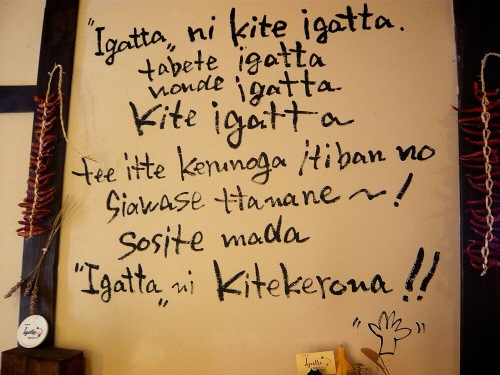 "Igatta„ ni kite igatta.
tabete igatta
nonde igatta
Kite igatta
tee itte kerunoga itiban no
Siawase ttanane ~ !
Sosite mada
"Igatta„ ni Kitekerona !!
Igatta
Igatta